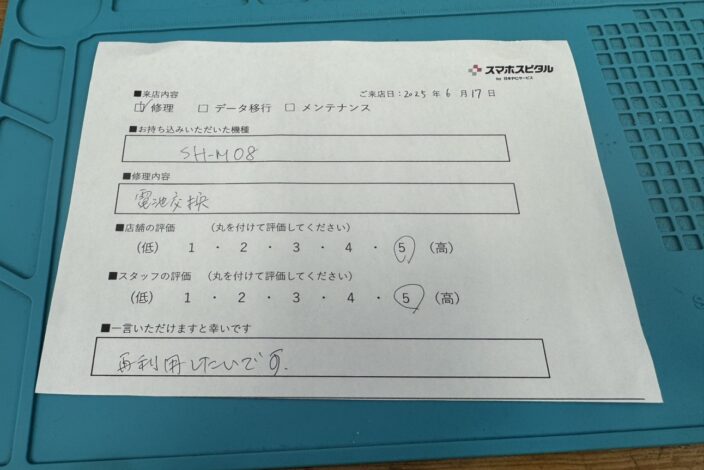 スマホスピタル
by 日本PCサービス
■来店内容
ご来店日：2025 年 6 月 17 日
☑修理 □ データ移行 □ メンテナンス
■お持ち込みいただいた機種
SH-M08
■修理内容
電池交換
■店舗の評価 （丸を付けて評価してください）
（低） 1 ・ 2 ・ 3 ・ 4 ・ 5 （高）
■スタッフの評価 （丸を付けて評価してください）
（低） 1 ・ 2 ・ 3 ・ 4 ・ 5 （高）
■一言いただけますと幸いです
再利用したいです.